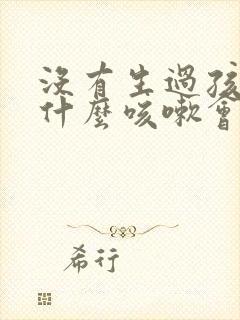 沒有生過孩
什麼咳嗽會
希行